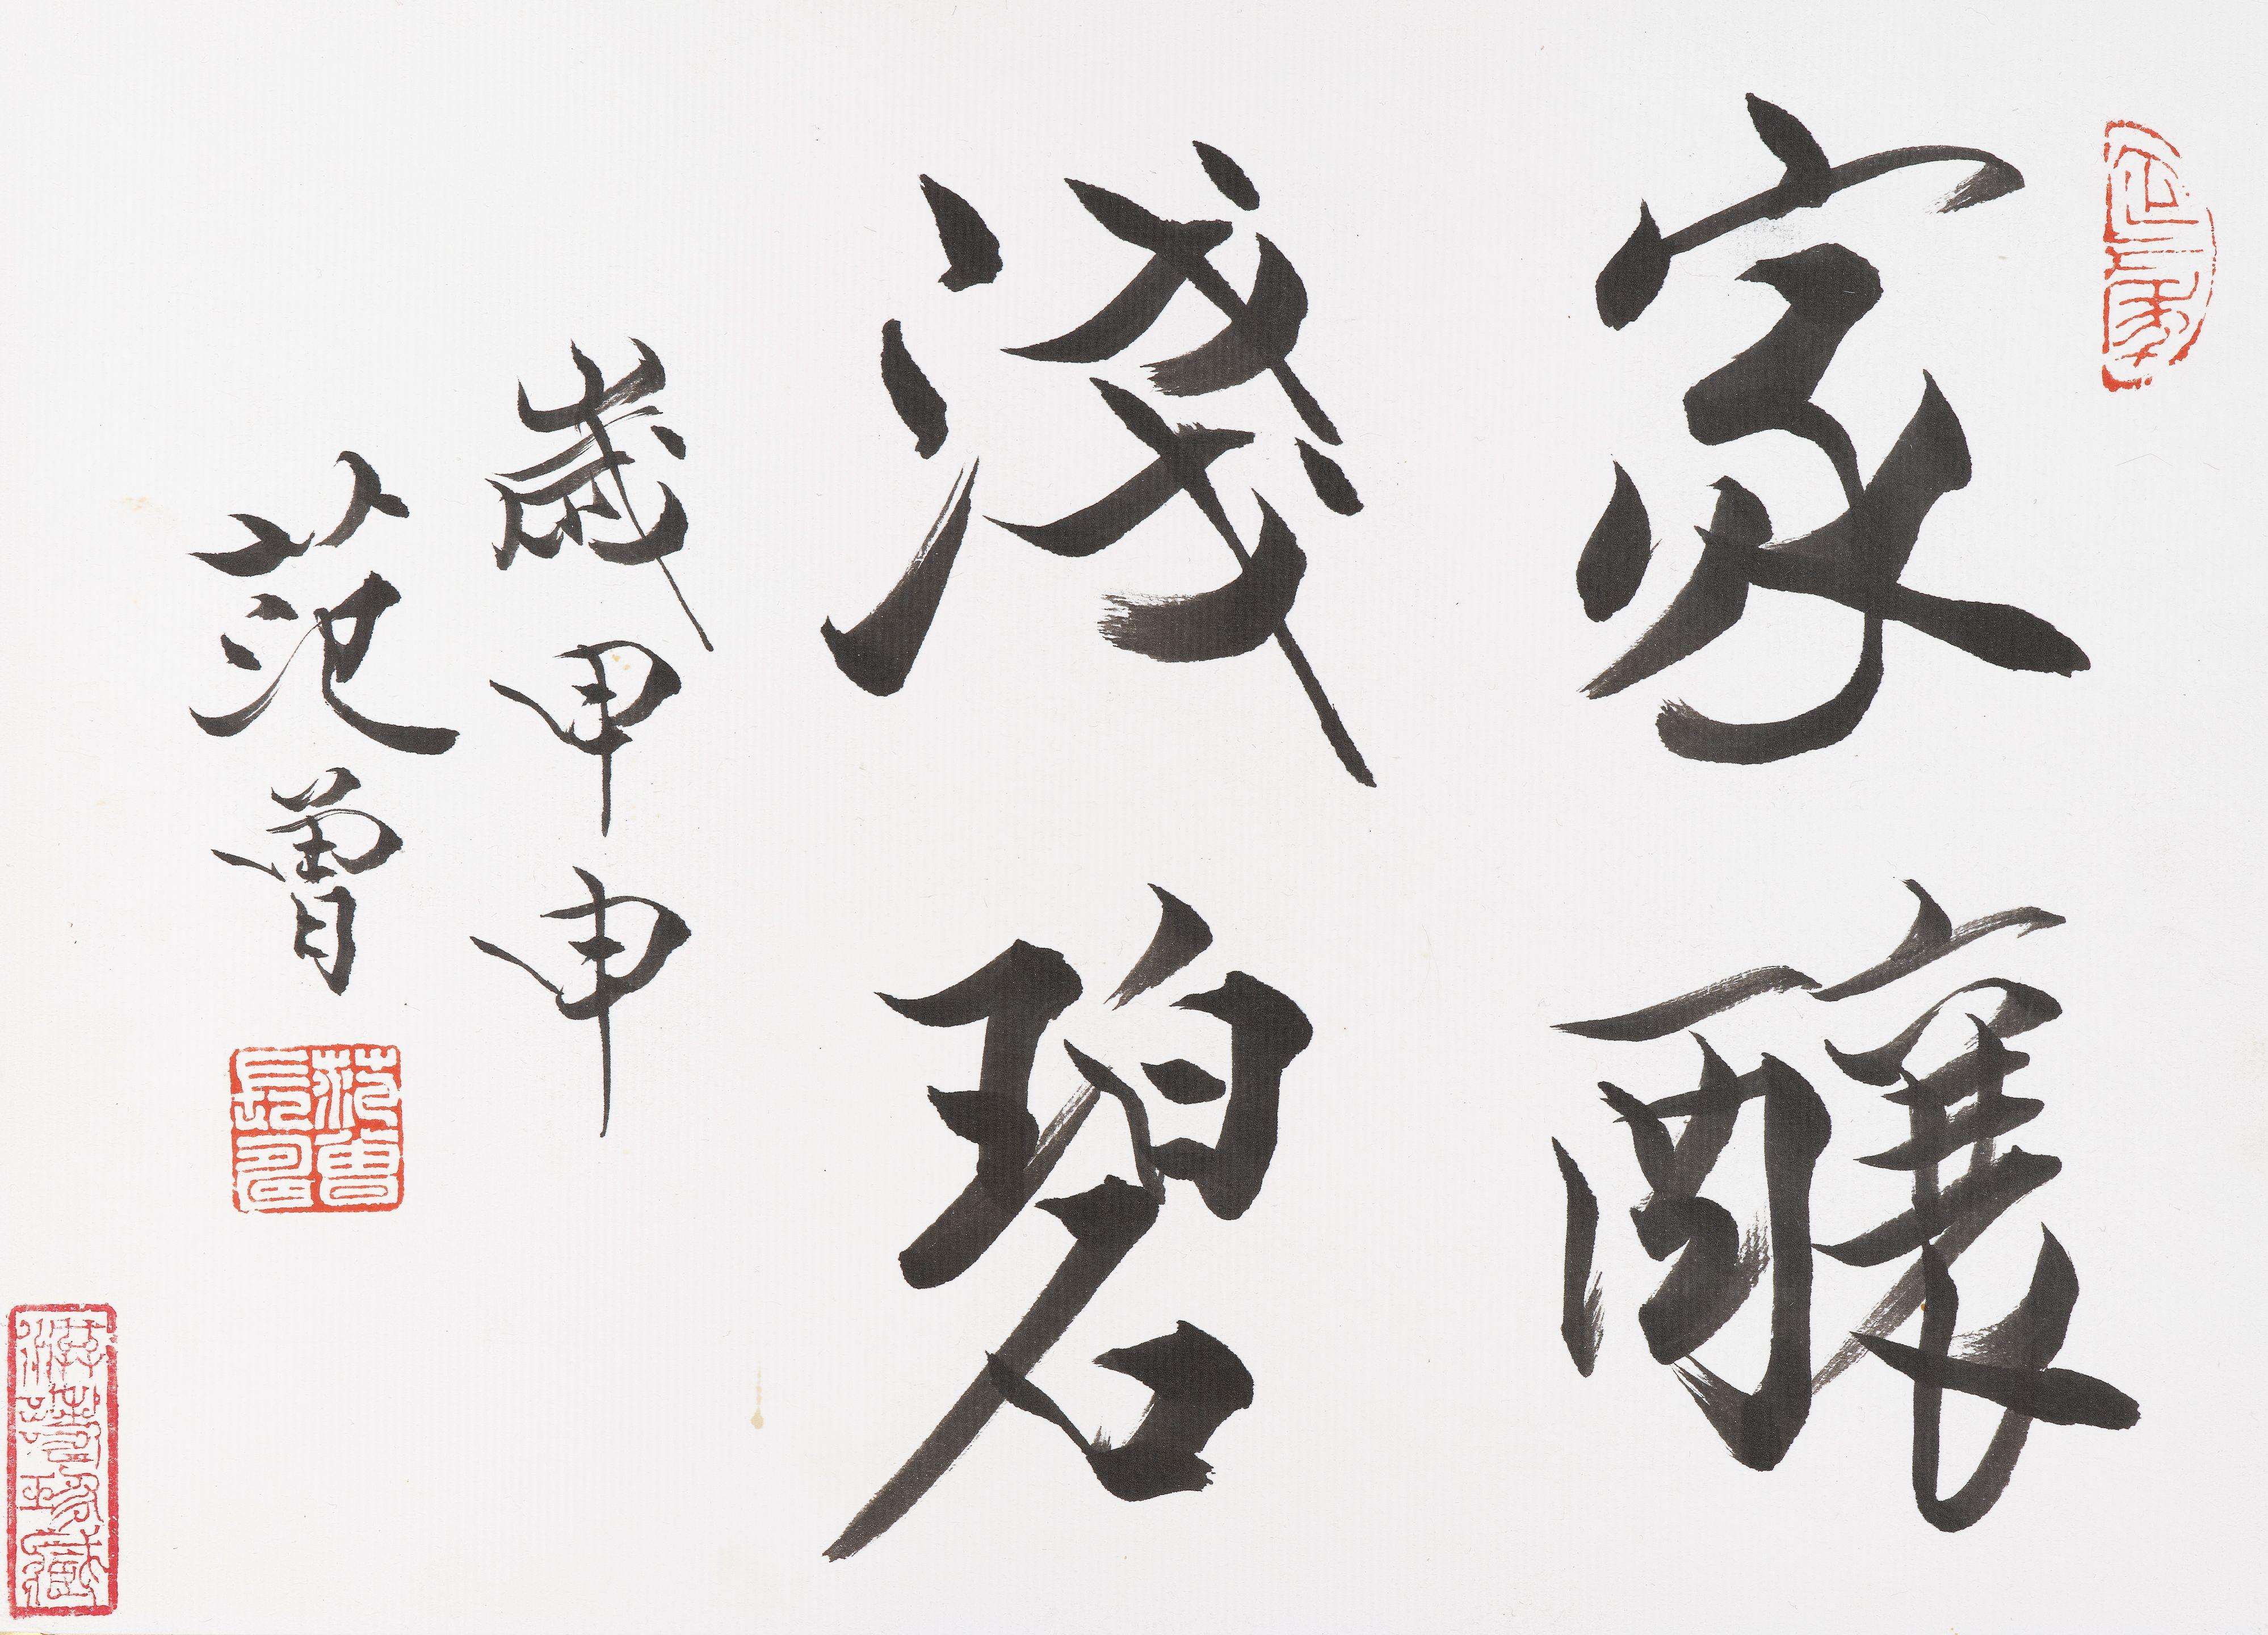 家釀
淺碧
歲甲申
范曾
范曾長壽